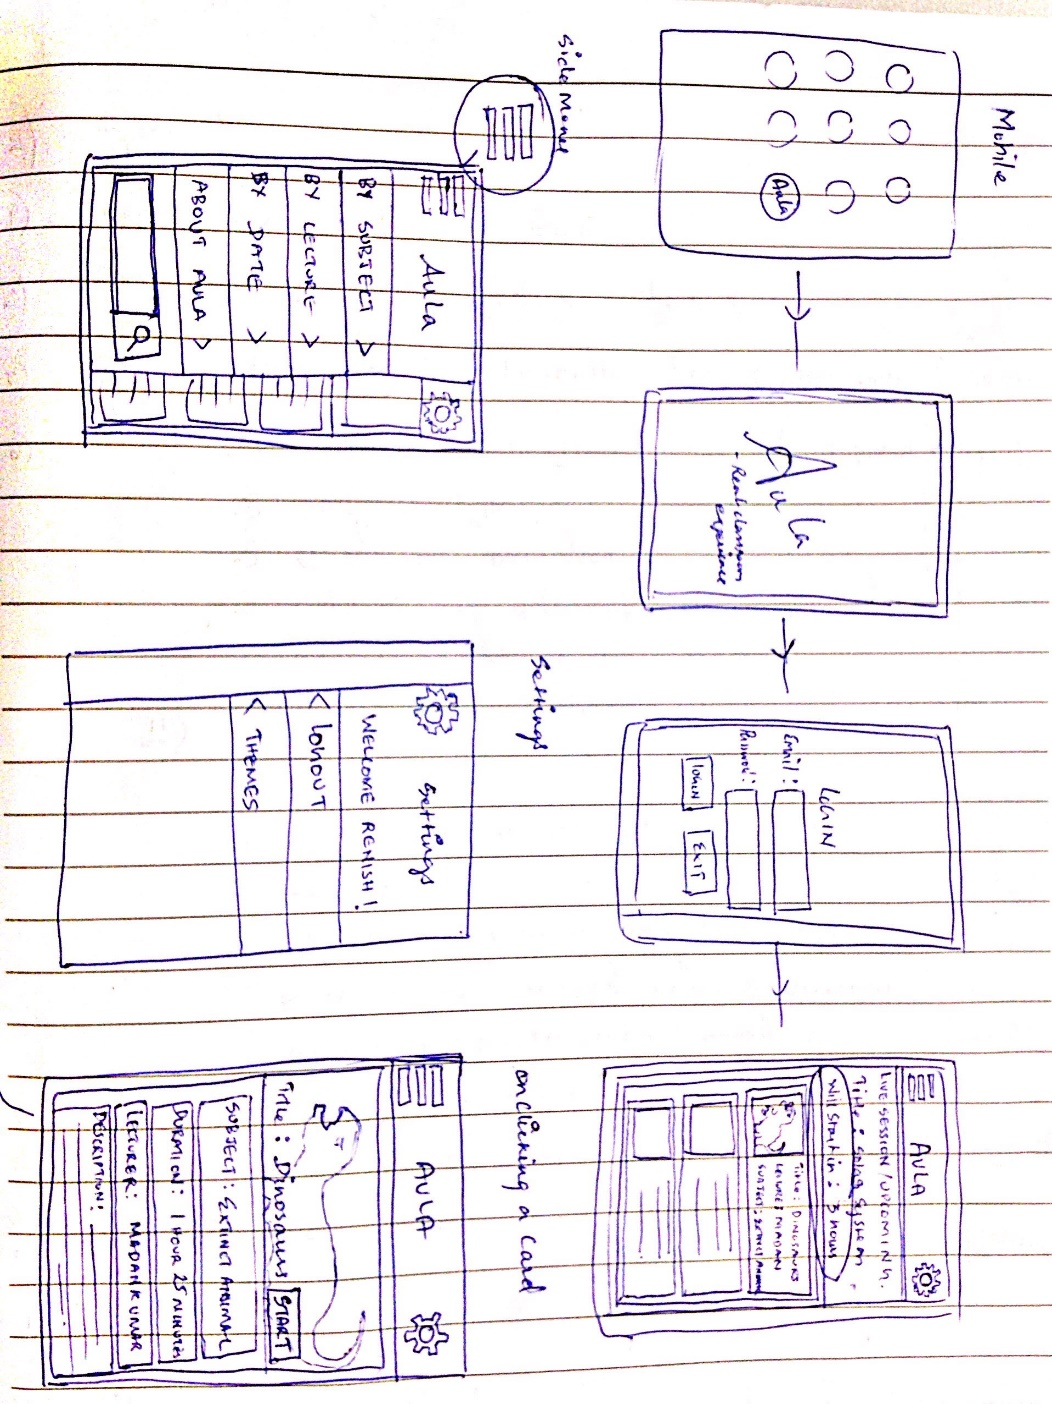 Mobile
Aula
Aula
- Real classroom
experience
LOGIN
Email :
Password :
LOGIN
EXIT
AULA
LIVE SESSION / UPCOMING.
Title : Solar System.
Will Start in : 3 hours
TITLE : DINOSAURS
LECTURER MADAN
SUBJECT : EXTINCT
Side Menu
Aula
BY SUBJECT >
BY LECTURE >
BY DATE >
ABOUT AULA >
Settings
Settings
WELCOME RENISH !
< LOGOUT
< THEMES
on clicking a card
AULA
Title : Dinosaurs
START
SUBJECT : EXTINCT ANIMAL
DURATION : 1 HOUR 25 MINUTES
LECTURER : MADAN KUMAR
DESCRIPTION :